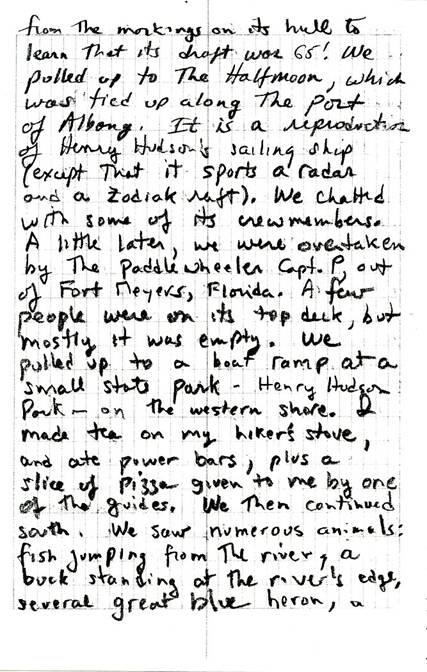 from the markings on its hull to
learn that its draft was 65! We
pulled up to The Halfmoon, which
was tied up along The Port
of Albany. It is a reproduction
of Henry Hudson's sailing ship
(except that it sports a radar
and a Zodiak raft). We chatted
with some of its crewmembers.
A little later, we were overtaken
by The Paddlewheeler Capt. P, out
of Fort Meyers, Florida. A few
people were on its top deck, but
mostly it was empty. We
pulled up to a boat ramp at a
small state park - Henry Hudson
Park - on the western shore. I
made tea on my hiker's stove,
and ate power bars, plus a
slice of pizza given to me by one
of the guides. We then continued
south. We saw numerous animals:
fish jumping from the river, a
buck standing at the river's edge,
several great blue heron, a